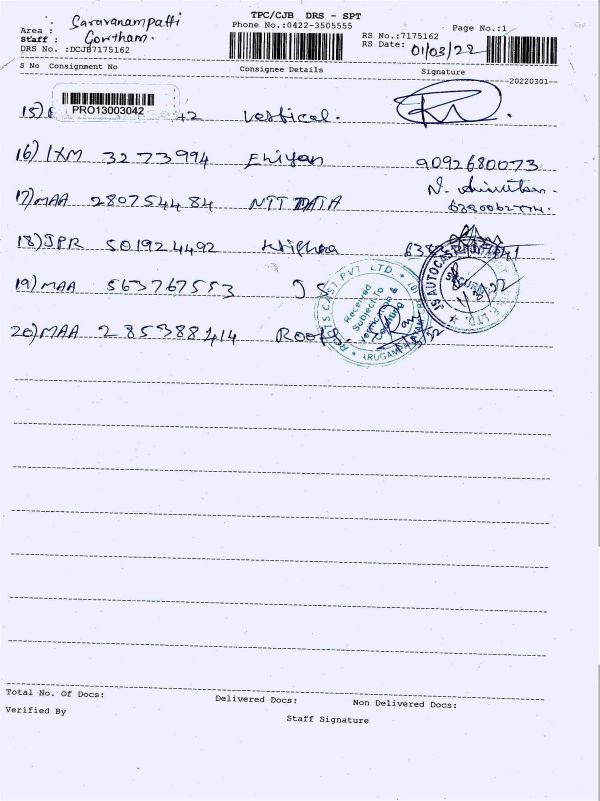 TPC/CJB DRS - SPT
Area : Saravanampatti
Phone No.:0422-3505555
Page No.:1
Staff : Gowtham.
RS No.:7175162
DRS No. :DCJB7175162
RS Date: 01/03/22
S No Consignment No Consignee Details Signature
20220301--
15) PRO13003042 42 Vertical.
16) IXM 3273994 Ehiyan 9092680073
17) MAA 280754484 NTT DATA
18) JPR 501924492
19) MAA 563767553 JS
20) MAA 285388414 Roots.
ROOTS CAST PVT LTD.
Received
Subject to
JS AUTOCAST
SECURITY
Total No. Of Docs: Delivered Docs: Non Delivered Docs:
Verified By
Staff Signature